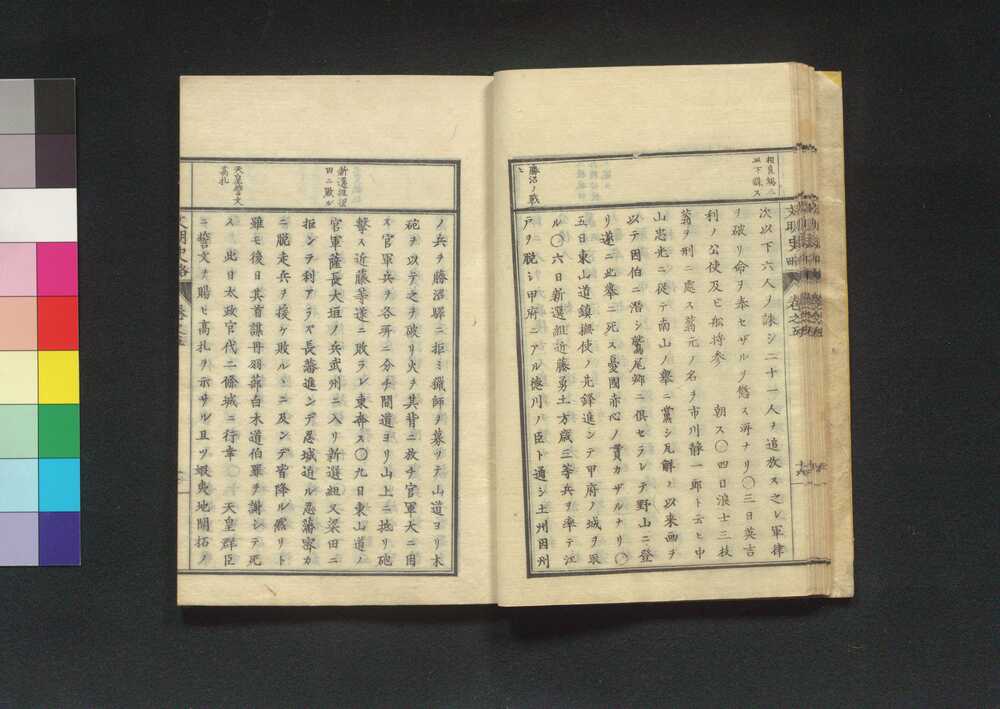 相良總三
以下誅ス
次以下六人ノ誅シ二十一人ヲ追放ス之レ軍律
ヲ破リ命ヲ奉セザルヲ懲ス所ナリ〇三日英吉
利ノ公使及ヒ船将参 朝ス〇四日浪士三枝
蓊ヲ刑ニ處ス蓊元ノ名ヲ市川靜一郎ト云ヒ中
山忠光ニ従テ南山ノ擧ニ黨シ瓦解ノ以来画ヲ
以テ因伯ニ潜シ鷲尾郷ニ倶セラレテ野山ニ登
リ遂ニ此擧ニ死ス憂國赤心ノ貫カザルナリ〇
五日東山道鎮撫使ノ先鋒進ンテ甲府ノ城ヲ取
ル〇六日新選組近藤勇土方歳三等兵ヲ率テ江
戸ヲ脱シ甲府ニアル徳川ノ臣ト通シ土州因州
勝沼ノ戰
ノ兵ヲ勝沼驛ニ拒ミ獵師ヲ募ツテ山道ヨリ木
砲ヲ以テ之ヲ破リ火ヲ其背ニ放チ官軍大ニ困
ス官軍兵ヲ各所ニ分チ間道ヨリ山上ニ抛リ砲
撃ス近藤等遂ニ敗ラレ東奔ス〇九日東山道ノ
官軍薩長大垣ノ兵武州ニ入リ新選組又梁田ニ
拒ンテ利アラズ長藩進ンデ忍城迫ル忍藩窃カ
ニ脱走兵ヲ援ケ敗ルヽニ及ンデ皆降ル熊リト
雖モ後日其首謀丹羽蔀白木道伯罪ヲ謝シテ死
ス 此日太政官代二條城ニ行幸〇 天皇群臣
ニ誓文ヲ賜ヒ高札ヲ示サル且ツ蝦夷地開拓ノ
新選組梁
田ニ敗ル
天皇誓文
高札
文明史略
巻之五